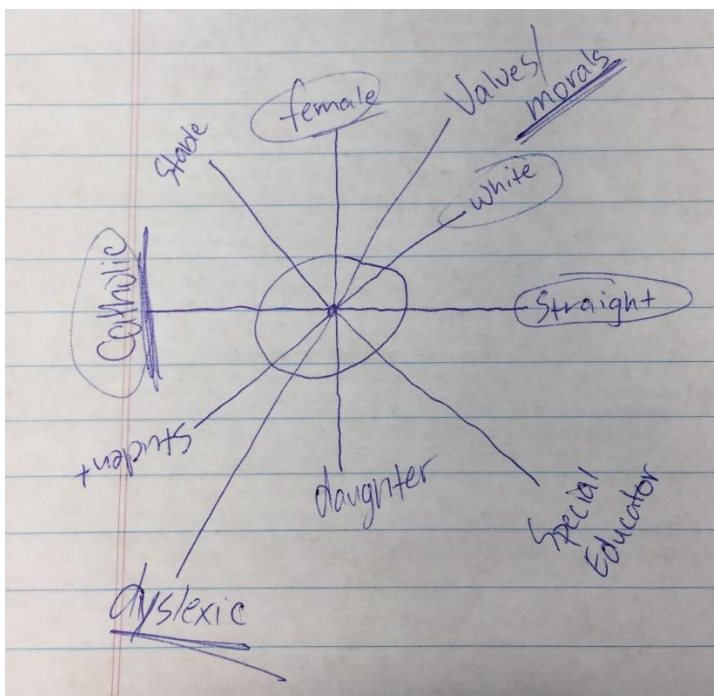 female
Values/
morals
White
Straight
Special
Educator
daughter
dyslexic
Student
Catholic
Stable